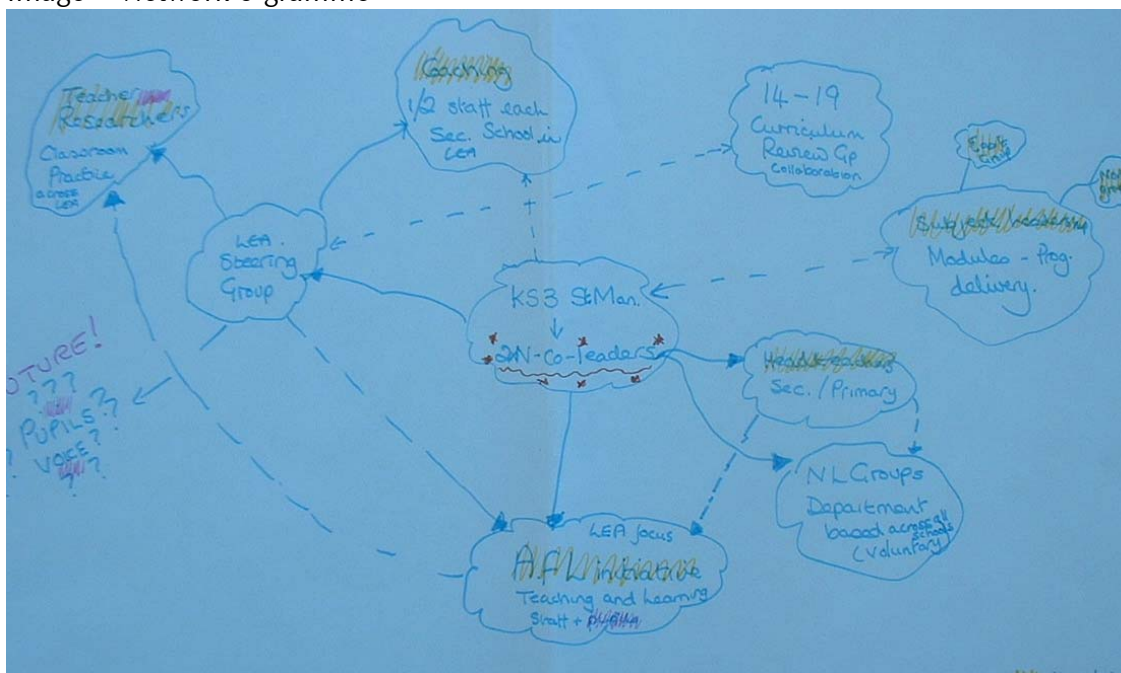 Teacher
Researchers
Classroom
Practice
across
LEA
Coaching
1/2 staff each
Sec. School in
LEA
14-19
Curriculum
Review Gp
Collaboration
Subject leadership
Modules - Prog.
delivery.
LEA.
Steering
Group
KS3 St Man.
2N-Co-leaders
Sec. / Primary
NL Groups
Department
based across all
schools
(voluntary
LEA focus
AFL initiative
Teaching and Learning
Staff +
???
PUPILS?
? VOICE?
? ?